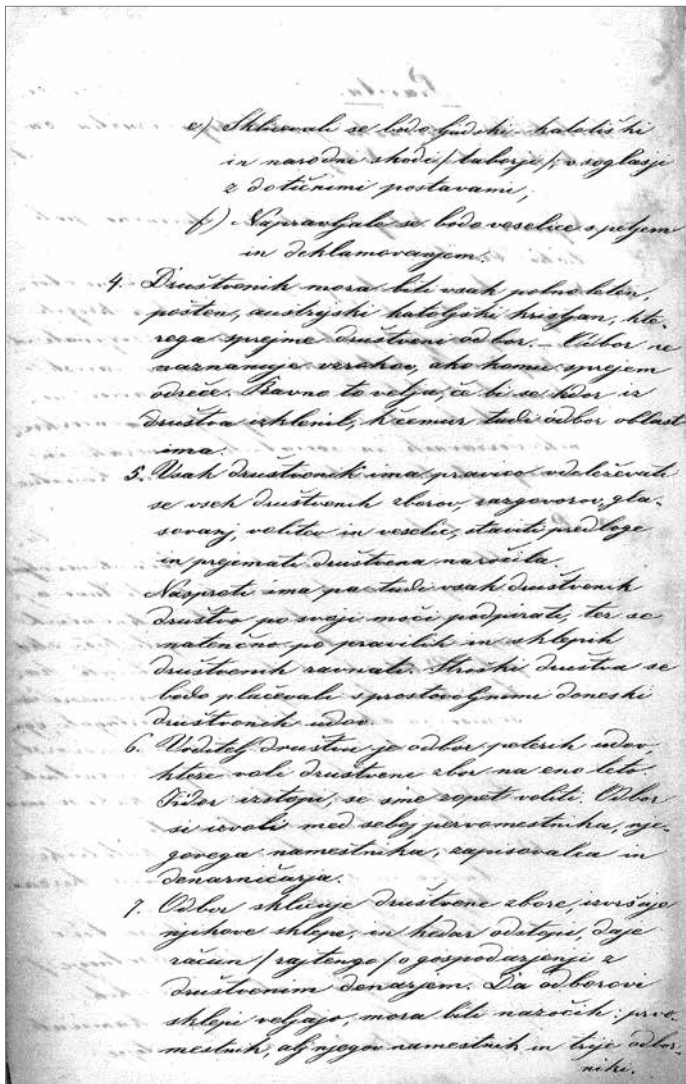 e) Sklicevali se bodo ljudski – katoliški
in narodni shodi / taborje /, v soglasji
z dotičnimi postavami;
f) Napravljale se bodo veselice s petjem
in deklamovanjem.
4. Društvenik mora biti vsak polnoleten,
pošten, austrijski katoljški kristjan, kte-
rega sprejme društveni odbor. – Odbor ne
naznanuje vzrokov, ako komu sprejem
odreče. Ravno to velja, če bi se kdor iz
društva izklenil, k čemur tudi odbor oblast
ima.
5. Vsak društvenik ima pravico vdeleževati
se vseh društvenih zborov, razgovorov, gla-
sovanj, volitov in veselic, staviti predloge
in prejemati društvena naročila.
Nasproti ima pa tudi vsak društvenik
društvo po svoji moči podpirati, ter se
natenčno po pravilih in sklepih
društvenih ravnati. Stroški društva se
bodo plačevali s prostovoljnimi doneski
društvenih udov.
6. Voditelj društvu je odbor peterih udov,
ktere voli društveni zbor na eno leto.
Kdor izstopi, se sme zopet voliti. Odbor
si izvoli med seboj pervomestnika, nje-
govega namestnika, zapisovalca in
denarničarja.
7. Odbor sklicuje društvene zbore, izvršuje
njihove sklepe, in kedar odstopi, daje
račun / rajtengo / o gospodarjenji z
društvenim denarjem. Da odborovi
sklepi veljajo, mora biti nazočih: prvo-
mestnik, alj njegov namestnik in trije odbor-
niki.